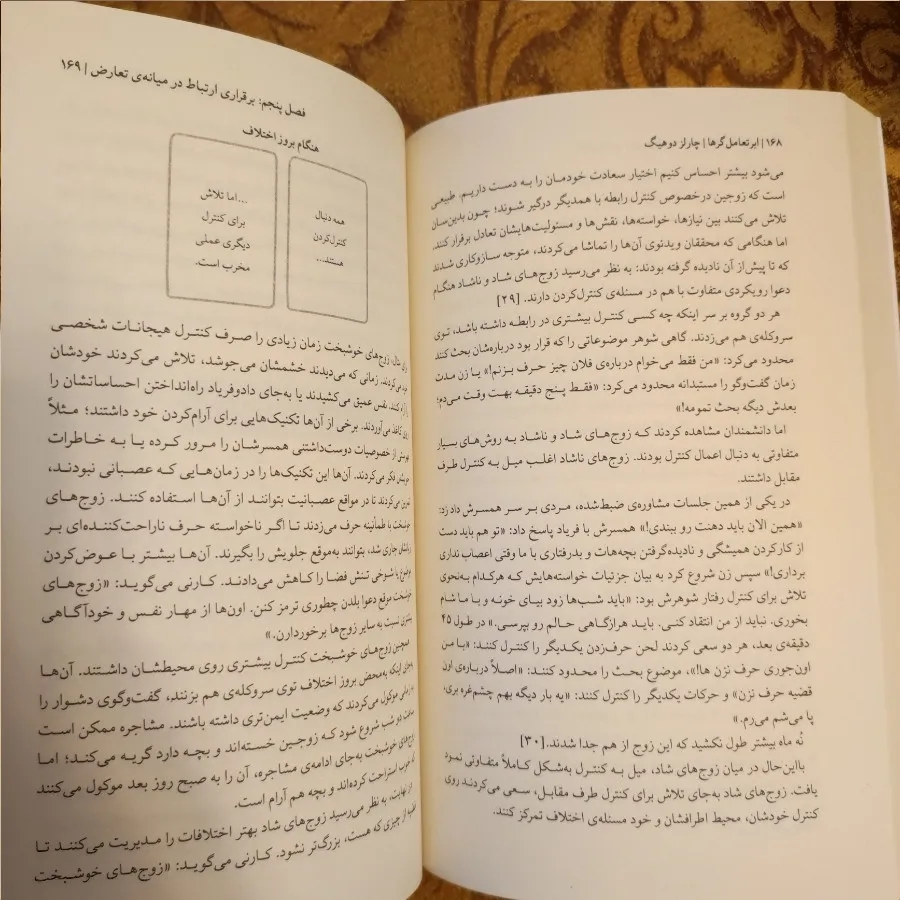 ۱۶۸ | ابرتعامل‌گرها | چارلز دوهیگ
می‌شود بیشتر احساس کنیم اختیار سعادت خودمان را به دست داریم. طبیعی
است که زوجین درخصوص کنترل رابطه با همدیگر درگیر شوند؛ چون بدین‌سان
تلاش می‌کنند بین نیازها، خواسته‌ها، نقش‌ها و مسئولیت‌هایشان تعادل برقرار کنند.
اما هنگامی که محققان ویدئوی آن‌ها را تماشا می‌کردند، متوجه سازوکاری شدند
که تا پیش از آن نادیده گرفته بودند: به نظر می‌رسید زوج‌های شاد و ناشاد هنگام
دعوا رویکردی متفاوت با هم در مسئله‌ی کنترل‌کردن دارند. [۲۹]
هر دو گروه بر سر اینکه چه کسی کنترل بیشتری در رابطه داشته باشد، توی
سروکله‌ی هم می‌زدند. گاهی شوهر موضوعاتی را که قرار بود درباره‌شان بحث کنند
محدود می‌کرد: «من فقط می‌خوام درباره‌ی فلان چیز حرف بزنم!» یا زن مدت
زمان گفت‌وگو را مستبدانه محدود می‌کرد: «فقط پنج دقیقه بهت وقت می‌دم؛
بعدش دیگه بحث تمومه!»
اما دانشمندان مشاهده کردند که زوج‌های شاد و ناشاد به روش‌های بسیار
متفاوتی به دنبال اعمال کنترل بودند. زوج‌های ناشاد اغلب میل به کنترل طرف
مقابل داشتند.
در یکی از همین جلسات مشاوره‌ی ضبط‌شده، مردی بر سر همسرش داد زد:
«همین الان باید دهنت رو ببندی!» همسرش با فریاد پاسخ داد: «تو هم باید دست
از کارکردن همیشگی و نادیده‌گرفتن بچه‌هات و بدرفتاری با ما وقتی اعصاب نداری
برداری!» سپس زن شروع کرد به بیان جزئیات خواسته‌هایش که هرکدام به‌نحوی
تلاش برای کنترل رفتار شوهرش بود: «باید شب‌ها زود بیای خونه و با ما شام
بخوری. نباید از من انتقاد کنی. باید هرازگاهی حالم رو بپرسی.» در طول ۴۵
دقیقه‌ی بعد، هر دو سعی کردند لحن حرف‌زدن یکدیگر را کنترل کنند: «با من
اون‌جوری حرف نزن ها!»، موضوع بحث را محدود کنند: «اصلاً درباره‌ی اون
قضیه حرف نزن» و حرکات یکدیگر را کنترل کنند: «یه بار دیگه بهم چشم‌غره بری،
پا می‌شم می‌رم.»
نُه ماه بیشتر طول نکشید که این زوج از هم جدا شدند. [۳۰]
بااین‌حال در میان زوج‌های شاد، میل به کنترل به‌شکل کاملاً متفاوتی نمود
یافت. زوج‌های شاد به‌جای تلاش برای کنترل طرف مقابل، سعی می‌کردند روی
کنترل خودشان، محیط اطرافشان و خود مسئله‌ی اختلاف تمرکز کنند.
فصل پنجم: برقراری ارتباط در میانه‌ی تعارض | ۱۶۹
هنگام بروز اختلاف
همه دنبال
کنترل‌کردن
هستند...
...اما تلاش
برای کنترل
دیگری عملی
مخرب است.
زوج‌های خوشبخت زمان زیادی را صرف کنترل هیجانات شخصی
می‌کردند. زمانی که می‌دیدند خشمشان می‌جوشد، تلاش می‌کردند خودشان
را کنند. نفس عمیق می‌کشیدند یا به‌جای دادوفریاد راه‌انداختن احساساتشان را
کاغذ می‌آوردند. برخی از آن‌ها تکنیک‌هایی برای آرام‌کردن خود داشتند؛ مثلاً
از خصوصیات دوست‌داشتنی همسرشان را مرور کرده یا به خاطرات
فکر می‌کردند. آن‌ها این تکنیک‌ها را در زمان‌هایی که عصبانی نبودند،
تمرین می‌کردند تا در مواقع عصبانیت بتوانند از آن‌ها استفاده کنند. زوج‌های
خوشبخت با طمأنینه حرف می‌زدند تا اگر ناخواسته حرف ناراحت‌کننده‌ای بر
زبانشان جاری شد، بتوانند به‌موقع جلویش را بگیرند. آن‌ها بیشتر با عوض‌کردن
موضوع یا شوخی تنش فضا را کاهش می‌دادند. کارنی می‌گوید: «زوج‌های
خوشبخت موقع دعوا بلدن چطوری ترمز کنن. اون‌ها از مهار نفس و خودآگاهی
بیشتری نسبت به سایر زوج‌ها برخوردارن.»
همچنین زوج‌های خوشبخت کنترل بیشتری روی محیطشان داشتند. آن‌ها
به‌جای اینکه به‌محض بروز اختلاف توی سروکله‌ی هم بزنند، گفت‌وگوی دشوار را
به زمانی موکول می‌کردند که وضعیت ایمن‌تری داشته باشند. مشاجره ممکن است
ساعت دو شب شروع شود که زوجین خسته‌اند و بچه دارد گریه می‌کند؛ اما
زوج‌های خوشبخت به‌جای ادامه‌ی مشاجره، آن را به صبح روز بعد موکول می‌کنند
که خوب استراحت کرده‌اند و بچه هم آرام است.
در نهایت، به نظر می‌رسید زوج‌های شاد بهتر اختلافات را مدیریت می‌کنند تا
از چیزی که هست، بزرگ‌تر نشود. کارنی می‌گوید: «زوج‌های خوشبخت